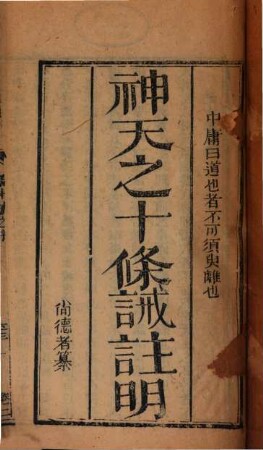 中庸曰道也者不可須臾離也
神天之十條誡註明
尙德者纂